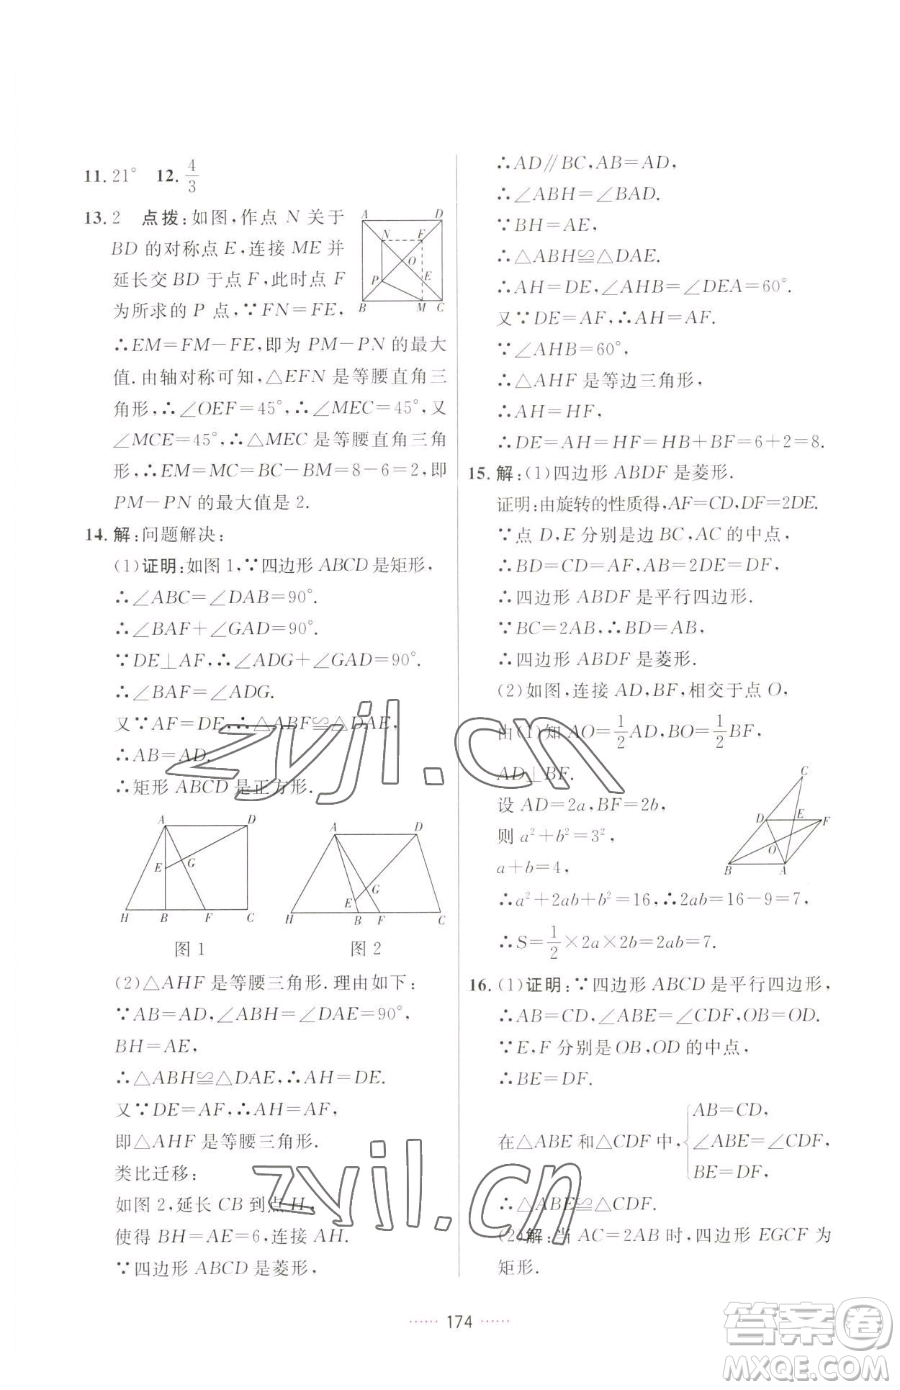 11. 21°　12. 4/3
13. 2　点拨:如图,作点 N 关于
BD 的对称点 E,连接 ME 并
延长交 BD 于点 F,此时点 F
为所求的 P 点,∵FN=FE,
∴EM=FM−FE,即为 PM−PN 的最大
值.由轴对称可知,△EFN 是等腰直角三
角形,∴∠OEF=45°,∴∠MEC=45°,又
∠MCE=45°,∴△MEC 是等腰直角三角
形,∴EM=MC=BC−BM=8−6=2,即
PM−PN 的最大值是 2.
A D N F O P E B M C
14. 解:问题解决:
(1)证明:如图 1,∵四边形 ABCD 是矩形,
∴∠ABC=∠DAB=90°.
∴∠BAF+∠GAD=90°.
∵DE⊥AF,∴∠ADG+∠GAD=90°.
∴∠BAF=∠ADG.
又∵AF=DE,∴△ABF≌△DAE.
∴AB=AD.
∴矩形 ABCD 是正方形.
A D E G H B F C
图 1
A D G E H B F C
图 2
(2)△AHF 是等腰三角形.理由如下:
∵AB=AD,∠ABH=∠DAE=90°,
BH=AE,
∴△ABH≌△DAE,∴AH=DE.
又∵DE=AF,∴AH=AF.
即△AHF 是等腰三角形.
类比迁移:
如图 2,延长 CB 到点 H,
使得 BH=AE=6,连接 AH.
∵四边形 ABCD 是菱形,
∴AD∥BC,AB=AD,
∴∠ABH=∠BAD.
∵BH=AE,
∴△ABH≌△DAE.
∴AH=DE,∠AHB=∠DEA=60°.
又∵DE=AF,∴AH=AF.
∵∠AHB=60°,
∴△AHF 是等边三角形,
∴AH=HF,
∴DE=AH=HF=HB+BF=6+2=8.
15. 解:(1)四边形 ABDF 是菱形.
证明:由旋转的性质得,AF=CD,DF=2DE.
∵点 D,E 分别是边 BC,AC 的中点,
∴BD=CD=AF,AB=2DE=DF.
∴四边形 ABDF 是平行四边形.
∵BC=2AB,∴BD=AB,
∴四边形 ABDF 是菱形.
(2)如图,连接 AD,BF,相交于点 O,
由(1)知 AO=1/2AD,BO=1/2BF,
AD⊥BF.
设 AD=2a,BF=2b,
则 a²+b²=3²,
a+b=4,
∴a²+2ab+b²=16,∴2ab=16−9=7,
∴S=1/2×2a×2b=2ab=7.
C D E F O B A
16. (1)证明:∵四边形 ABCD 是平行四边形,
∴AB=CD,∠ABE=∠CDF,OB=OD.
∵E,F 分别是 OB,OD 的中点,
∴BE=DF.
在△ABE 和△CDF 中,{AB=CD,
∠ABE=∠CDF,
BE=DF.
∴△ABE≌△CDF.
(2)解:当 AC=2AB 时,四边形 EGCF 为
矩形.
······ 174 ······
zyjl.cn
zyjl.cn
答案圈
MXQE.COM